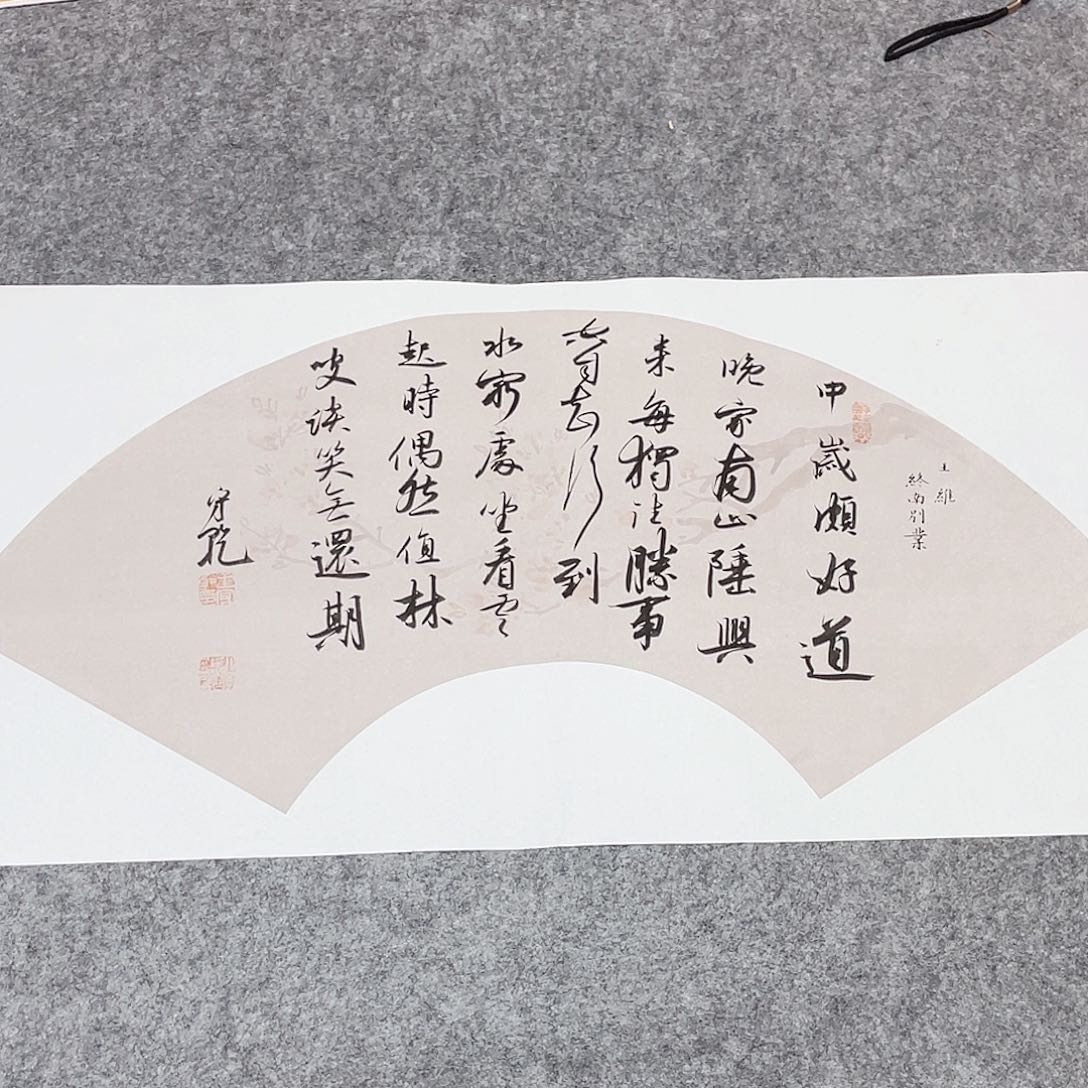 王維
終南別業
中歲頗好道
晚家南山陲興
来每獨往勝事
空自知行到
水窮處坐看雲
起時偶然值林
叟談笑无還期